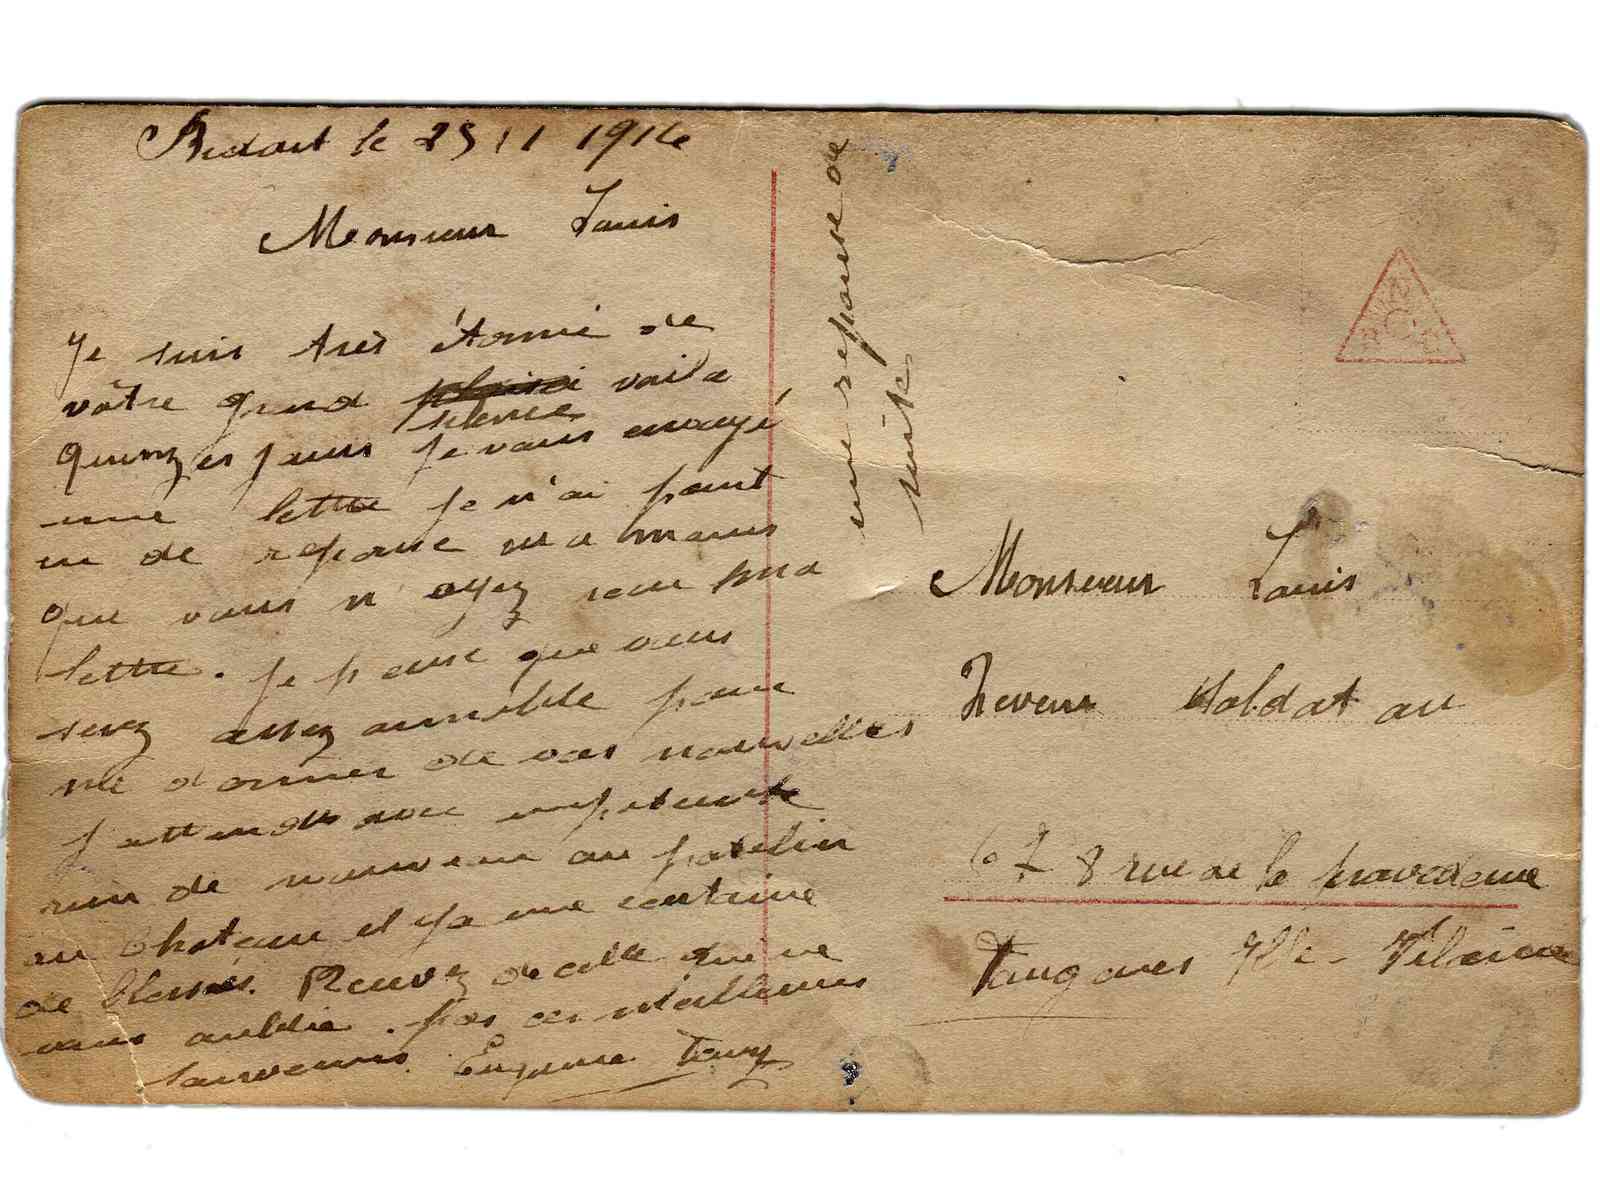 Bidart le 25 11 1914
Monsieur Louis
Je suis très étonné de
vôtre grand plaisi voila
silence
quinzes jours je vous envoyé
une lettre je n'ai point
eu de reponse est a moins
que vous n'ayez reçu ma
lettre. Je pense que vous
serez assez aimable pour
me donner de vos nouvelles
j'attends avec impatience
rien de nouveau au patelin
au Chateau il y a une centaine
de blessés. Recevez de celle qui ne
vous oublie. pas ces meilleures
souvenirs. Eugenie
une reponse de
suite
Monsieur Louis
soldat au
67 8 rue de la providence
Fougères Ille-Vilaine